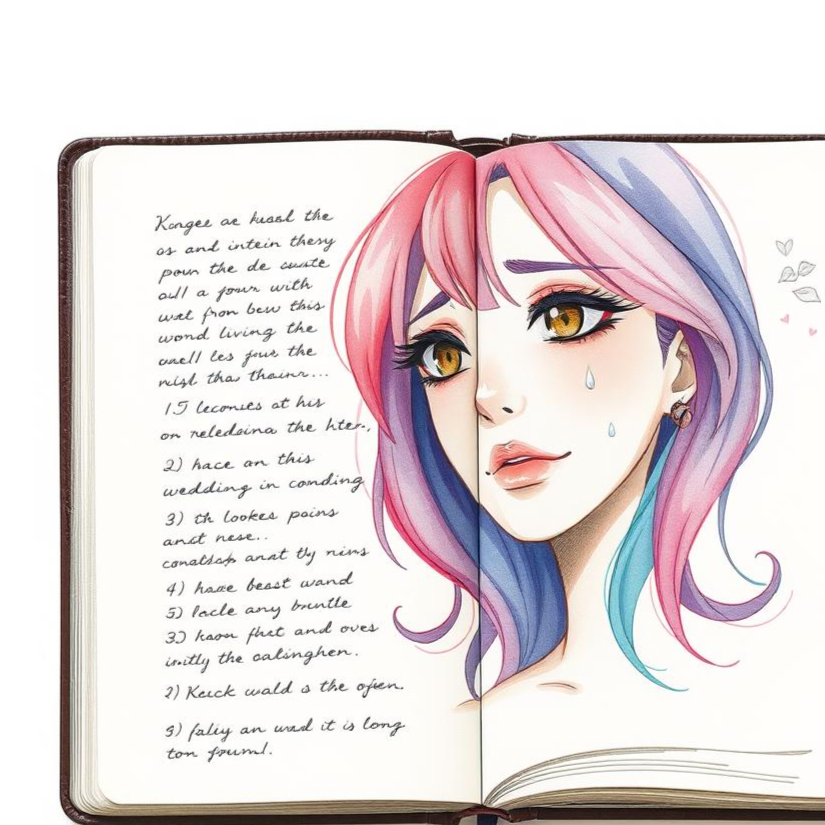 Kongee ae kuabl the
os and intein thesy
pown the de cuute
all a jown with
wat fron bew this
wond living the
uuell les jour the
nisl thas thainr...
15 leconies at his
on reledsina the hter.,
2) hace an this
wedding in conding
3) th lookes pains
anct nese..
conattsap anat thy nins
4) have beast wand
5) lacle any bruntle
33 kaon fhet and oves
initly the calsinghen.
2) Keuck wald s the ofien.
3) faliy an wad it is long
ton jouml.